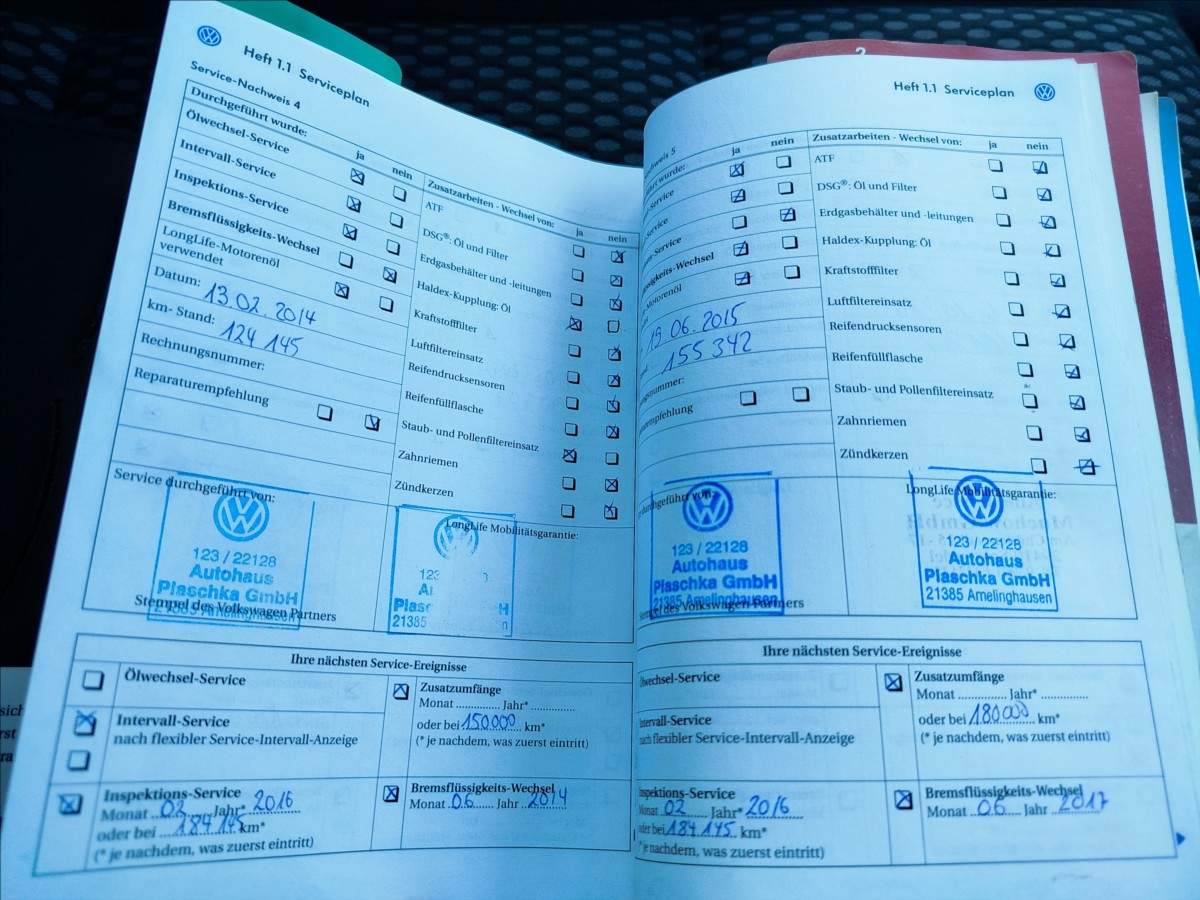 Heft 1.1 Serviceplan
Service-Nachweis 4
Durchgeführt wurde:
ja nein
Ölwechsel-Service
Intervall-Service
Inspektions-Service
Bremsflüssigkeits-Wechsel
LongLife-Motorenöl
verwendet
Datum: 13.02.2014
km- Stand: 124 145
Rechnungsnummer:
Reparaturempfehlung
Zusatzarbeiten - Wechsel von:
ja nein
ATF
DSG®: Öl und Filter
Erdgasbehälter und -leitungen
Haldex-Kupplung: Öl
Kraftstofffilter
Luftfiltereinsatz
Reifendrucksensoren
Reifenfüllflasche
Staub- und Pollenfiltereinsatz
Zahnriemen
Zündkerzen
Service durchgeführt von:
123 / 22128
Autohaus
Plaschka GmbH
21385 Amelinghausen
Stempel des Volkswagen Partners
LongLife Mobilitätsgarantie:
21385
Ihre nächsten Service-Ereignisse
Ölwechsel-Service
Intervall-Service
nach flexibler Service-Intervall-Anzeige
Inspektions-Service
Monat 02 Jahr* 2016
oder bei 184 145 km*
(* je nachdem, was zuerst eintritt)
Zusatzumfänge
Monat .............. Jahr* ..............
oder bei 150000 km*
(* je nachdem, was zuerst eintritt)
Bremsflüssigkeits-Wechsel
Monat 06 Jahr 2014
Heft 1.1 Serviceplan
2
ja nein
wurde:
Service
Service
Service
Wechsel
Motorenöl
19.06.2015
155 342
Zusatzarbeiten - Wechsel von:
ja nein
ATF
DSG®: Öl und Filter
Erdgasbehälter und -leitungen
Haldex-Kupplung: Öl
Kraftstofffilter
Luftfiltereinsatz
Reifendrucksensoren
Reifenfüllflasche
Staub- und Pollenfiltereinsatz
Zahnriemen
Zündkerzen
durchgeführt von:
123 / 22128
Autohaus
Plaschka GmbH
21385 Amelinghausen
Stempel des Volkswagen Partners
LongLife Mobilitätsgarantie:
123 / 22128
Autohaus
Plaschka GmbH
21385 Amelinghausen
Ihre nächsten Service-Ereignisse
Ölwechsel-Service
Intervall-Service
nach flexibler Service-Intervall-Anzeige
Inspektions-Service
Monat 02 Jahr* 2016
oder bei 184 145 km*
(* je nachdem, was zuerst eintritt)
Zusatzumfänge
Monat .............. Jahr* ..............
oder bei 180000 km*
(* je nachdem, was zuerst eintritt)
Bremsflüssigkeits-Wechsel
Monat 06 Jahr 2017